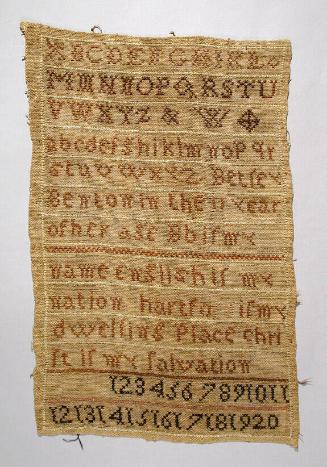 ABCDEFGHIKL
MNNOPQRSTU
VWXYZ & W
abcdefghiklmnopqr
stuvwxyz Betſey
Benton in the 11 year
of her age Bb iſ my
name engliſh iſ my
nation hartfu iſ my
dwelling place chri
ſt iſ my ſalvation
1234567891011
121314151617181920